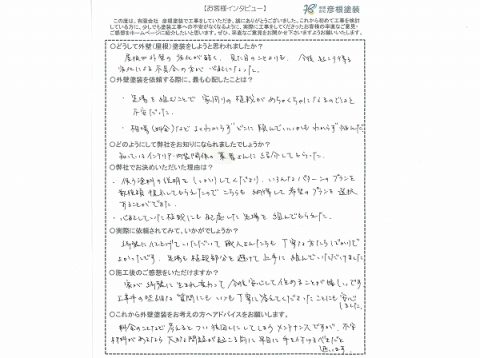 【お客様インタビュー】
有限会社 彦根塗装
この度は、有限会社 彦根塗装で工事をしていただき、誠にありがとうございました。これから初めて工事を検討
している方に、少しでも塗装工事への不安がなくなるように、実際に工事をしてくださったお客様の率直なご意見・
ご感想をホームページに紹介したいと思います。ぜひ、率直なご意見をお聞かせ下さいますようお願いいたします。
○どうして外壁(屋根)塗装をしようと思われましたか?
屋根や外壁の劣化が酷く、見た目のことよりも、今後起こり得る
劣化による不具合の方が心配になった。
○外壁塗装を依頼する際に、最も心配したことは?
・足場を組むことで家周りの植栽がめちゃくちゃになるのではと
不安だった。
・相場(料金)などよくわからずどこに頼んでいいかもわからず悩んだ
○どのようにして弊社をお知りになられましたでしょうか?
知っているインテリア・内装関係の業者さんに紹介してもらった。
○弊社でお決めいただいた理由は?
・使う塗料の説明をしっかりしてくださり、いろんなパターンのプランを
数種類提示してもらえたのでこちらも納得して希望のプランを選択
することができた。
・心配していた植栽にも配慮した足場を組んでもらえた。
○実際に依頼されてみて、いかがでしょうか?
綺麗に仕上げていただいて職人さんたちも丁寧な方たちばかりで
よかったです。足場も植栽部分を避けて上手に組んでいただけました
○施工後のご感想をいただけますか?
家が綺麗に生まれ変わって今後安心して住めることが嬉しいです
工事中の些細な質問にもいつも丁寧に答えてくださったことにも安心
しました。
○これから外壁塗装をお考えの方へアドバイスをお願いします。
料金のことなど考えるとつい後回しにしてしまうメンテナンスですが、不安
材料があるなら大きな問題が起こる前に早目に手を打つべきだと
思います